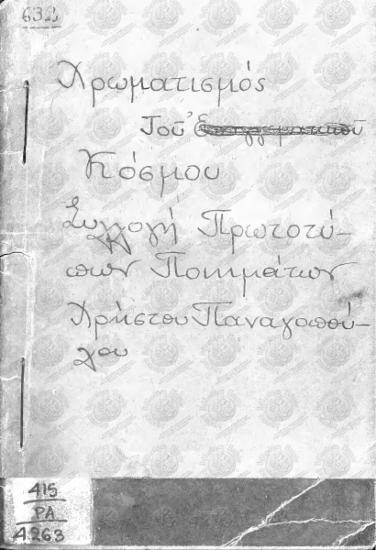 632
Χρωματισμός
Τοῦ Ἐπαγγεματικοῦ
Κόσμου
Συλλογή Πρωτοτύ-
πων Ποιημάτων
Χρήστου Παναγοπού-
λου
415
PA
A263